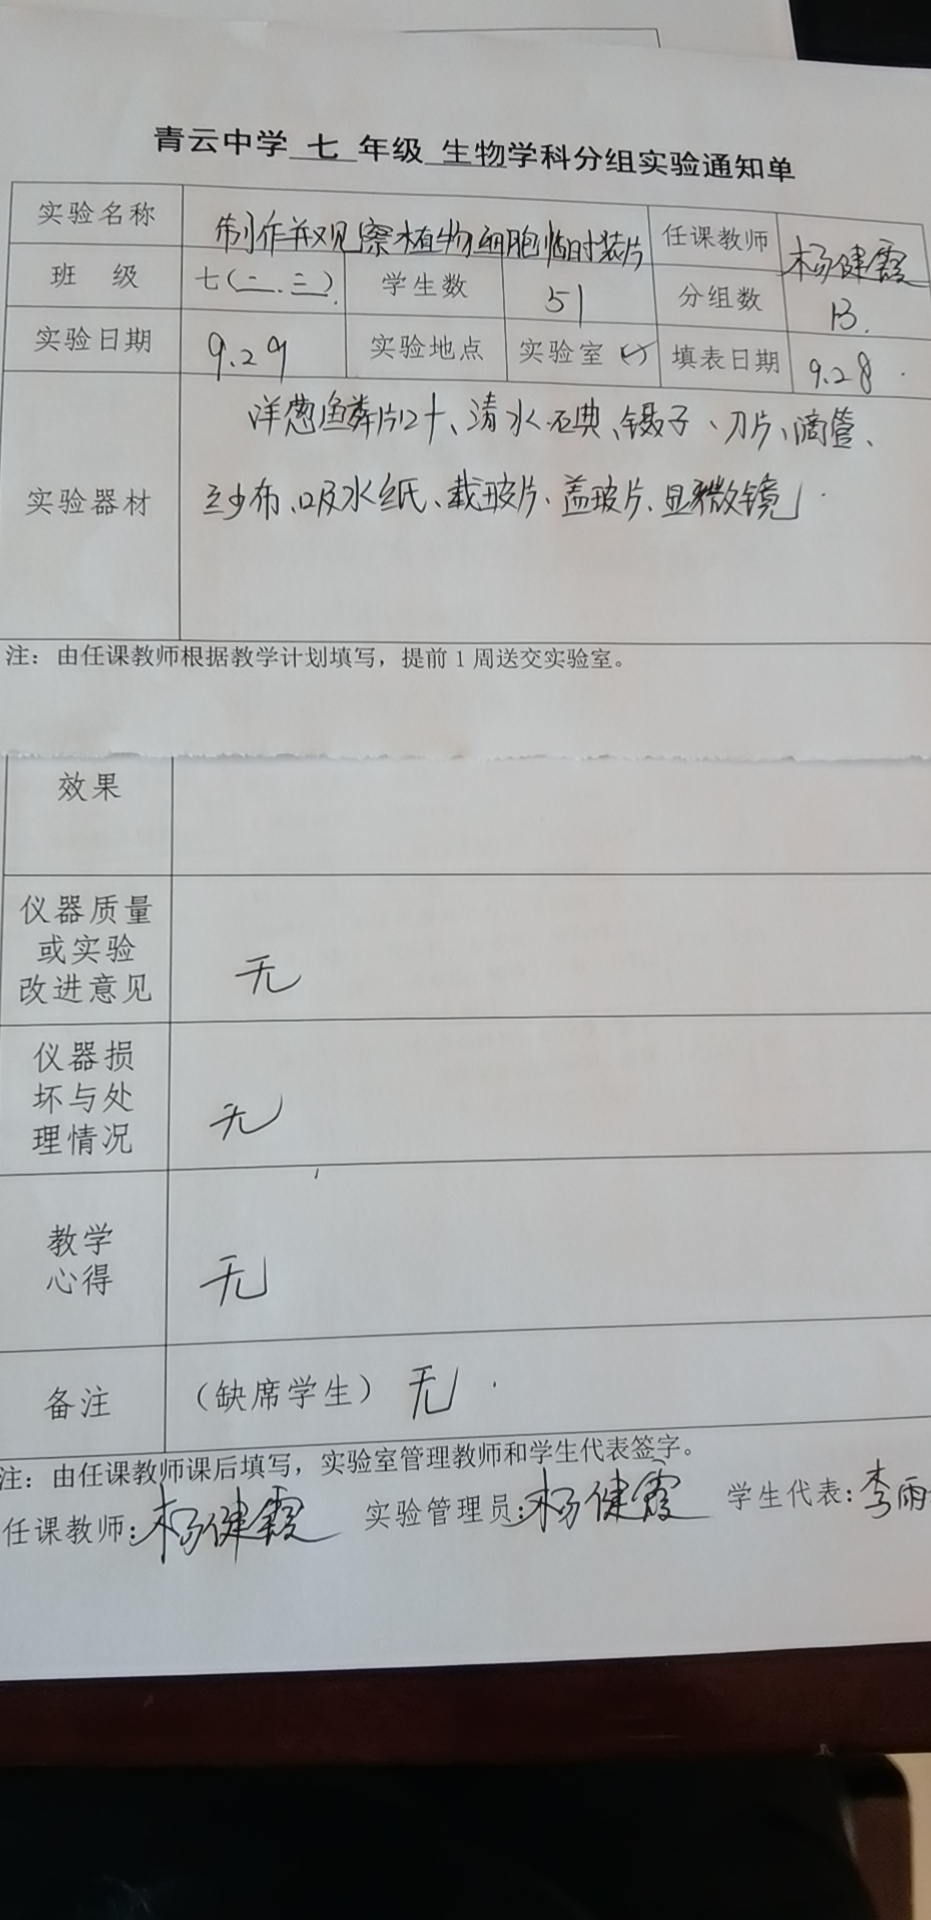 青云中学 七 年级 生物学科分组实验通知单
实验名称 制作并观察植物细胞临时装片 任课教师 杨健霞
班 级 七(二.三). 学生数 51 分组数 13.
实验日期 9.29 实验地点 实验室 填表日期 9.28.
实验器材
洋葱鳞片叶、清水、碘、镊子、刀片、滴管、
纱布、吸水纸、载玻片、盖玻片、显微镜.
注：由任课教师根据教学计划填写，提前1周送交实验室。
效果
仪器质量
或实验
改进意见
无
仪器损
坏与处
理情况
无
教学
心得
无
备注 （缺席学生）无.
注：由任课教师课后填写，实验室管理教师和学生代表签字。
任课教师:杨健霞 实验管理员:杨健霞 学生代表:李雨